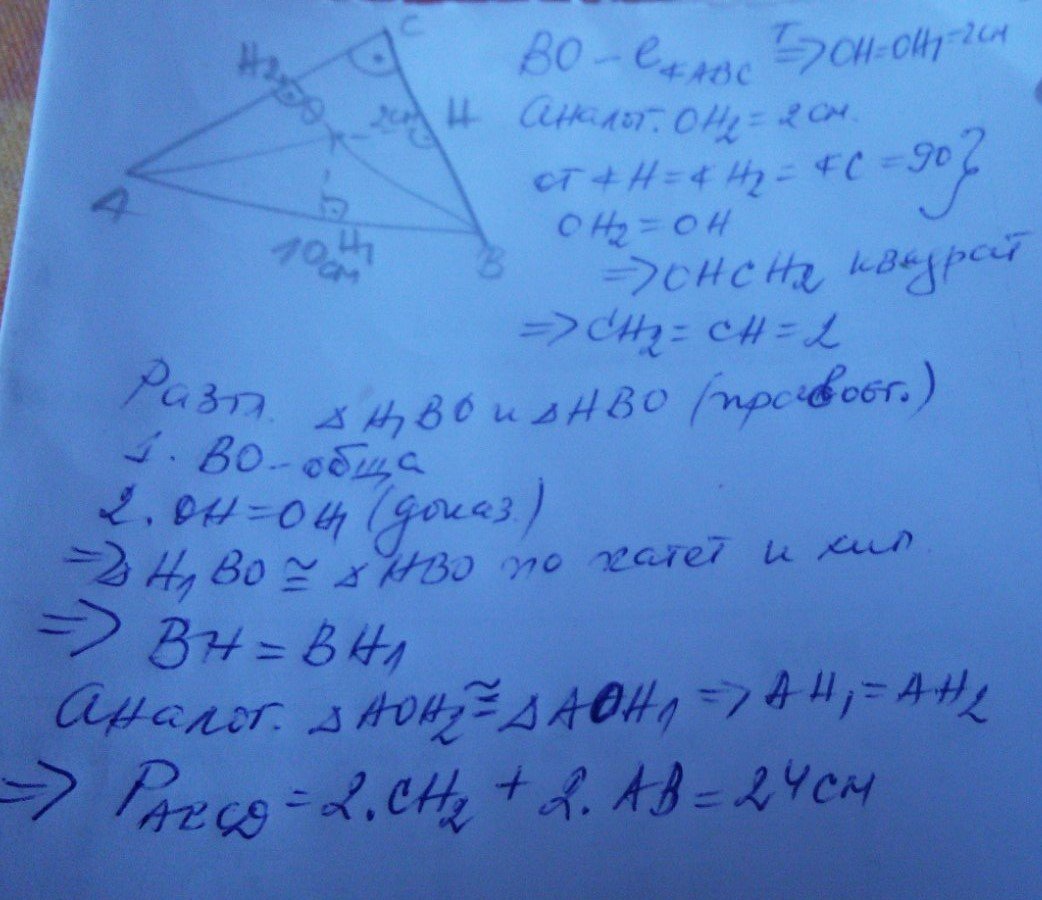 C
H2
O
2см
H
A
H1
10см
B
BO – l∢ABC T⇒ OH=OH1=2см
Аналог. OH2 = 2см.
от ∢H = ∢H2 = ∢C = 90}
OH2 = OH
⇒ OHCH2 квадрат
⇒ CH2 = CH = 2
Разгл. △H1BO и △HBO (правоъг.)
1. BO – обща
2. OH = OH1 (доказ.)
⇒ △H1BO ≅ △HBO по катет и хип.
⇒ BH = BH1
Аналог. △AOH2 ≅ △AOH1 ⇒ AH1 = AH2
= 2.CH2 + 2.AB = 24см